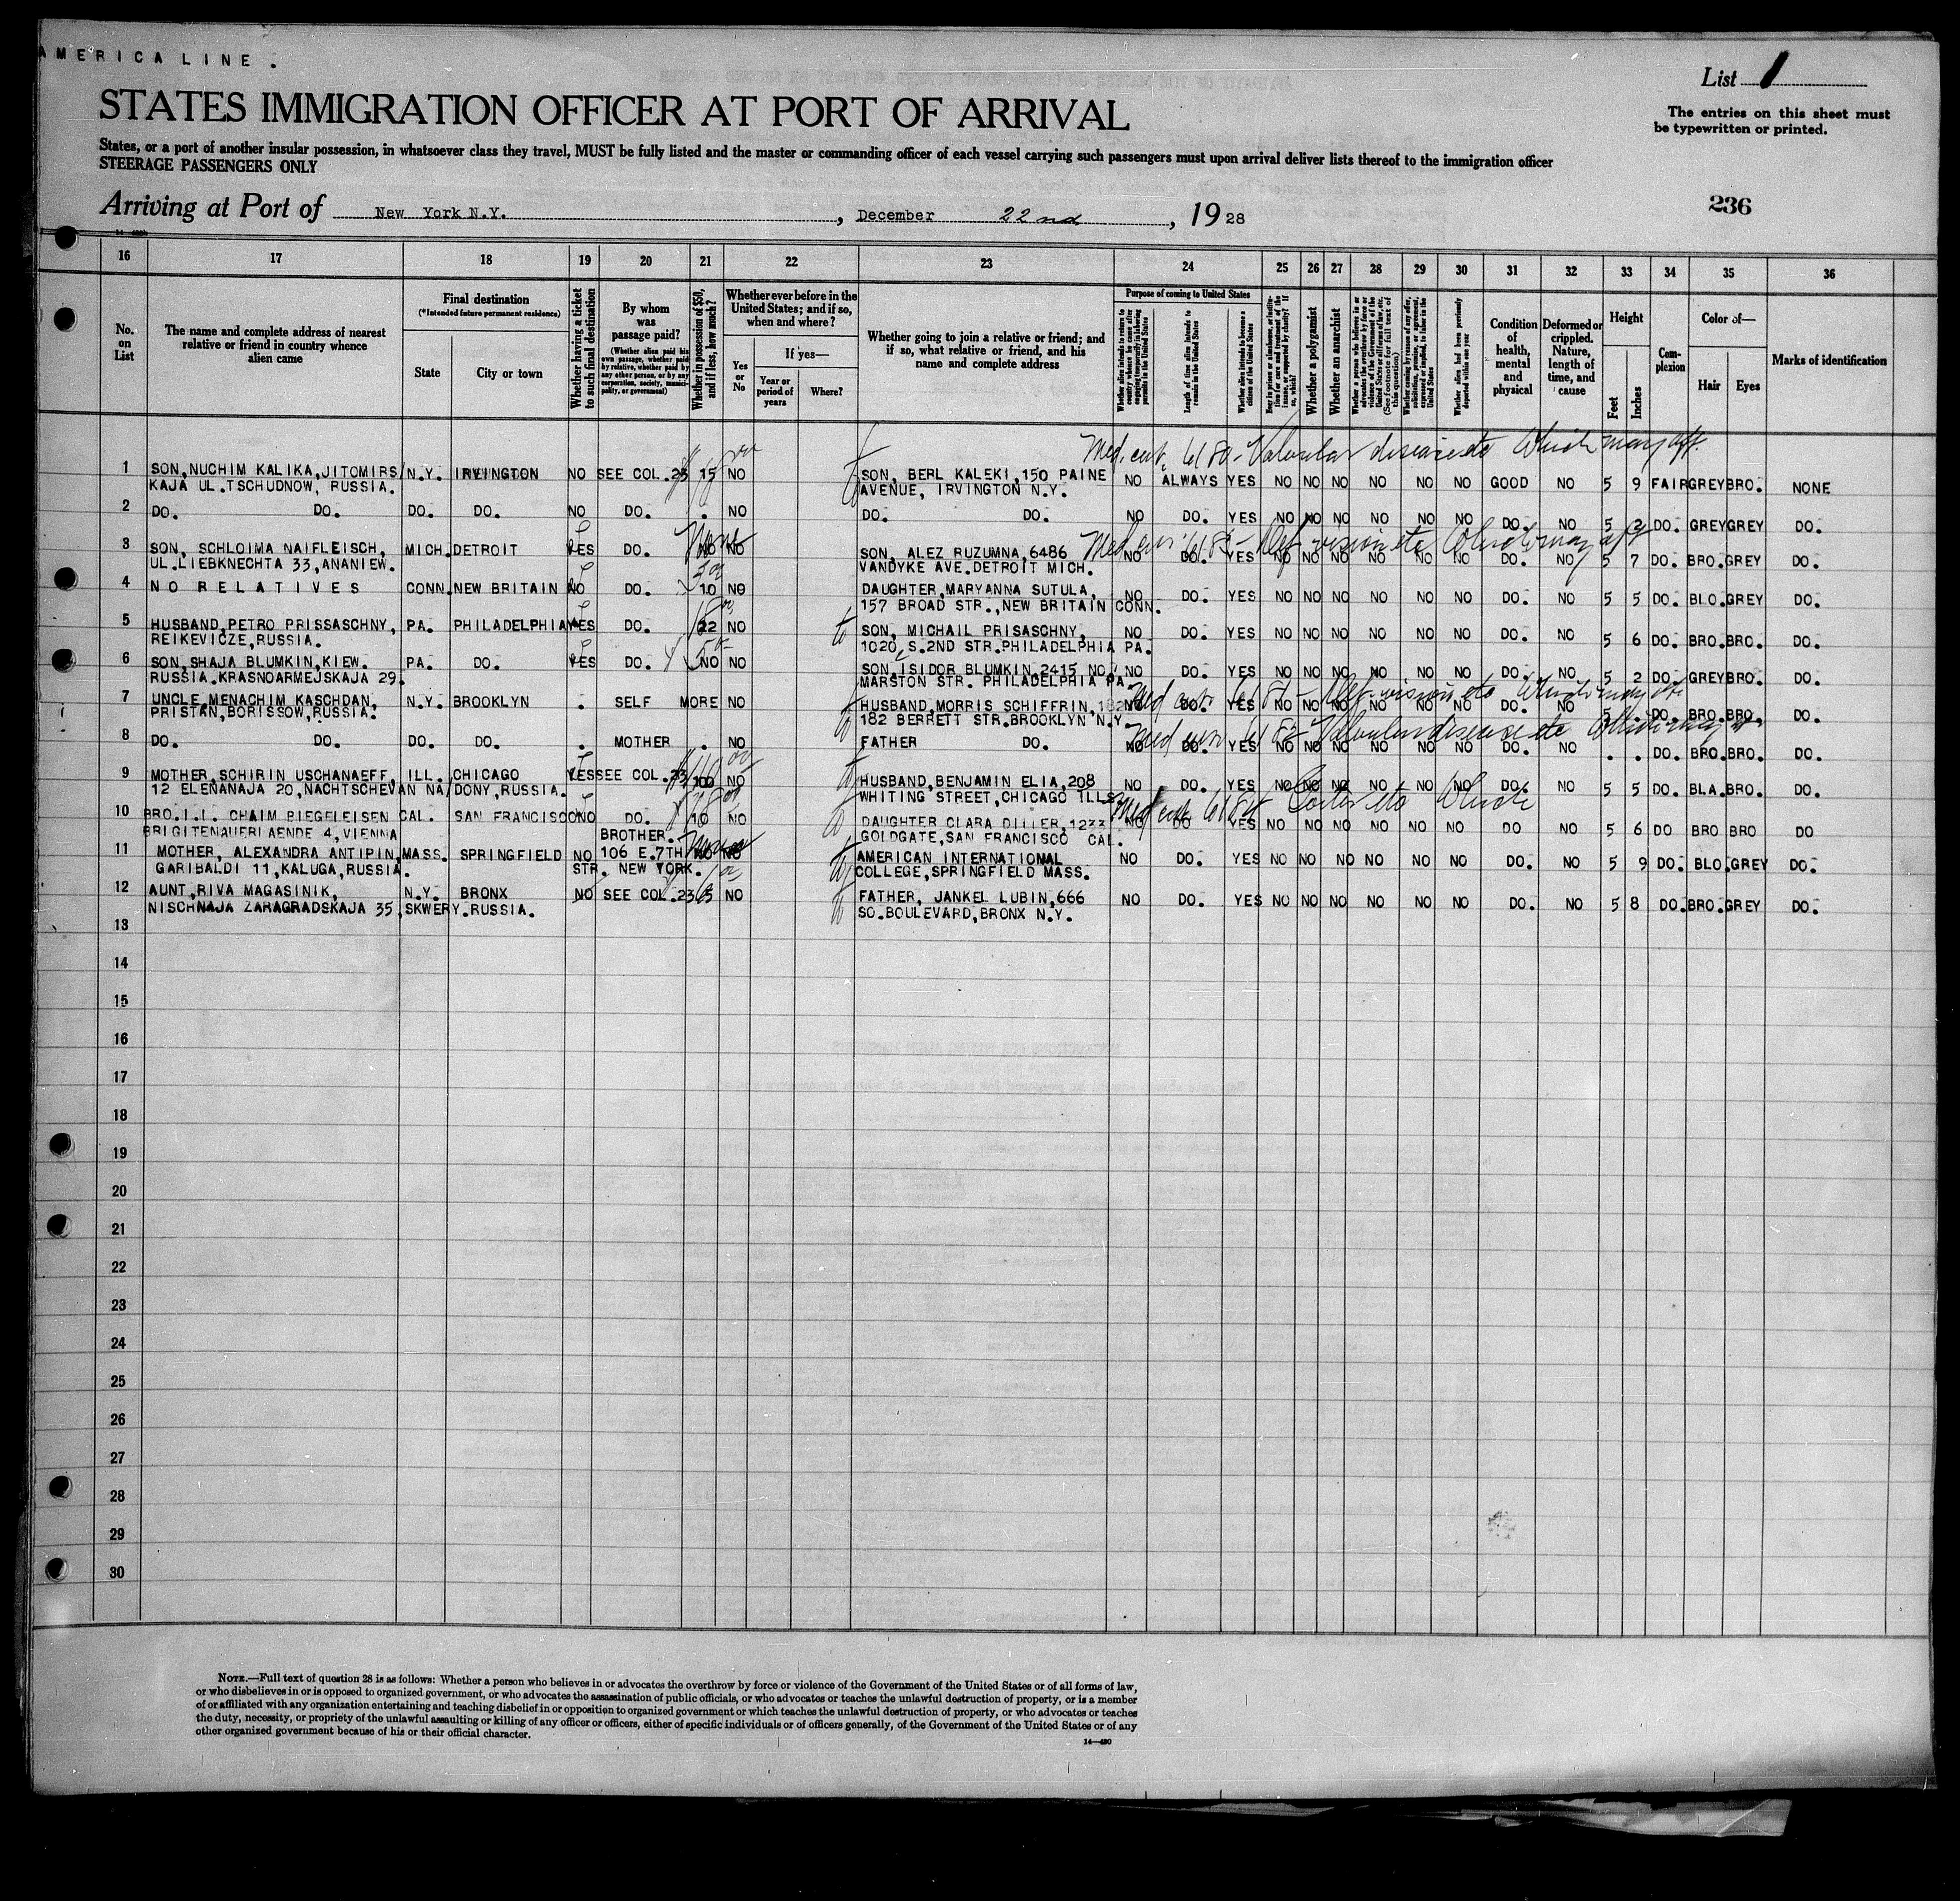 AMERICA LINE.
List 1
STATES IMMIGRATION OFFICER AT PORT OF ARRIVAL
The entries on this sheet must
be typewritten or printed.
States, or a port of another insular possession, in whatsoever class they travel, MUST be fully listed and the master or commanding officer of each vessel carrying such passengers must upon arrival deliver lists thereof to the immigration officer
STEERAGE PASSENGERS ONLY
Arriving at Port of New York N.Y., December 22nd, 1928
236
16 17 18 19 20 21 22 23 24 25 26 27 28 29 30 31 32 33 34 35 36
No. on List
The name and complete address of nearest relative or friend in country whence alien came
Final destination
(*Intended future permanent residence)
State
City or town
Whether having a ticket to such final destination
By whom was passage paid?
(Whether alien paid his own passage, whether paid by relative, whether paid by any other person, or by any corporation, society, municipality, or government)
Whether in possession of $50, and if less, how much?
Whether ever before in the United States; and if so, when and where?
Yes or No
If yes—
Year or period of years
Where?
Whether going to join a relative or friend; and if so, what relative or friend, and his name and complete address
Purpose of coming to United States
Length of time alien intends to remain in the United States
Whether alien intends to become a citizen of the United States
Whether a polygamist
Whether an anarchist
Whether alien had been previously deported within one year
Condition of health, mental and physical
Deformed or crippled. Nature, length of time, and cause
Height
Feet
Inches
Complexion
Color of—
Hair
Eyes
Marks of identification
Med. cert. 6180 - Valvular disease etc Which may aff.
1 SON, NUCHIM KALIKA, JITOMIRS/ N.Y. IRVINGTON NO SEE COL. 23 15 NO SON, BERL KALEKI, 150 PAINE NO ALWAYS YES NO NO NO NO NO NO GOOD NO 5 9 FAIR GREY BRO. NONE
KAJA UL. TSCHUDNOW, RUSSIA. AVENUE, IRVINGTON N.Y.
2 DO. DO. DO. DO. NO DO. . NO DO. DO. NO DO. YES NO NO NO NO NO NO DO. NO 5 2 DO. GREY GREY DO.
3 SON, SCHLOIMA NAIFLEISCH, MICH. DETROIT YES DO. NO NO SON, ALEZ RUZUMNA, 6486 NO DO. YES NO NO NO NO NO NO DO. NO 5 7 DO. BRO. GREY DO.
UL. LIEBKNECHTA 33, ANANIEW. VANDYKE AVE. DETROIT MICH.
4 NO RELATIVES CONN. NEW BRITAIN NO DO. 10 NO DAUGHTER, MARYANNA SUTULA, NO DO. YES NO NO NO NO NO NO DO. NO 5 5 DO. BLO. GREY DO.
157 BROAD STR., NEW BRITAIN CONN.
5 HUSBAND, PETRO PRISSASCHNY, PA. PHILADELPHIA YES DO. 22 NO SON, MICHAIL PRISASCHNY, NO DO. YES NO NO NO NO NO NO DO. NO 5 6 DO. BRO. BRO. DO.
REIKEVICZE, RUSSIA. 1020, S. 2ND STR. PHILADELPHIA PA.
6 SON, SHAJA BLUMKIN, KIEW. PA. DO. YES DO. NO NO SON, ISIDOR BLUMKIN 2415 NO. NO DO. YES NO NO NO NO NO NO DO. NO 5 2 DO. GREY BRO. DO.
RUSSIA. KRASNOARMEJSKAJA 29. MARSTON STR. PHILADELPHIA PA.
7 UNCLE, MENACHIM KASCHDAN, N.Y. BROOKLYN . SELF MORE NO HUSBAND, MORRIS SCHIFFRIN, 182 NO DO. YES NO NO NO NO NO NO DO. NO 5 . DO. BRO. BRO. DO.
PRISTAN, BORISSOW, RUSSIA. 182 BERRETT STR. BROOKLYN N.Y.
8 DO. DO. DO. DO. . MOTHER . NO FATHER DO. NO DO. YES NO NO NO NO NO NO DO. NO . . DO. BRO. BRO. DO.
9 MOTHER, SCHIRIN USCHANAEFF, ILL. CHICAGO YES SEE COL. 23 100 NO HUSBAND, BENJAMIN ELIA, 208 NO DO. YES NO NO NO NO NO NO DO. NO 5 5 DO. BLA. BRO. DO.
12 ELENANAJA 20, NACHTSCHEVAN NA/DONY, RUSSIA. WHITING STREET, CHICAGO ILLS.
10 BRO.I.L. CHAIM BIEGELEISEN CAL. SAN FRANCISCO NO DO. 10 NO DAUGHTER CLARA DILLER, 1233 NO DO YES NO NO NO NO NO NO DO NO 5 6 DO BRO BRO DO
BRIGITENAUERLAENDE 4, VIENNA GOLDGATE, SAN FRANCISCO CAL.
11 MOTHER, ALEXANDRA ANTIPIN, MASS. SPRINGFIELD NO BROTHER. 106 E. 7TH STR. NEW YORK. NO NO AMERICAN INTERNATIONAL NO DO. YES NO NO NO NO NO NO DO. NO 5 9 DO. BLO. GREY DO.
GARIBALDI 11, KALUGA, RUSSIA. COLLEGE, SPRINGFIELD MASS.
12 AUNT, RIVA MAGASINIK, N.Y. BRONX NO SEE COL. 23 NO FATHER, JANKEL LUBIN, 666 NO DO. YES NO NO NO NO NO NO DO. NO 5 8 DO. BRO. GREY DO.
NISCHNAJA ZARAGRADSKAJA 35, SKWERY. RUSSIA. SO. BOULEVARD, BRONX N.Y.
13
14
15
16
17
18
19
20
21
22
23
24
25
26
27
28
29
30
NOTE.—Full text of question 28 is as follows: Whether a person who believes in or advocates the overthrow by force or violence of the Government of the United States or of all forms of law,
or who disbelieves in or is opposed to organized government, or who advocates the assassination of public officials, or who advocates or teaches the unlawful destruction of property, or is a member
of or affiliated with any organization entertaining and teaching disbelief in or opposition to organized government or which teaches the unlawful destruction of property, or who advocates or teaches
the duty, necessity, or propriety of the unlawful assaulting or killing of any officer or officers, either of specific individuals or of officers generally, of the Government of the United States or of any
other organized government because of his or their official character.
14—430